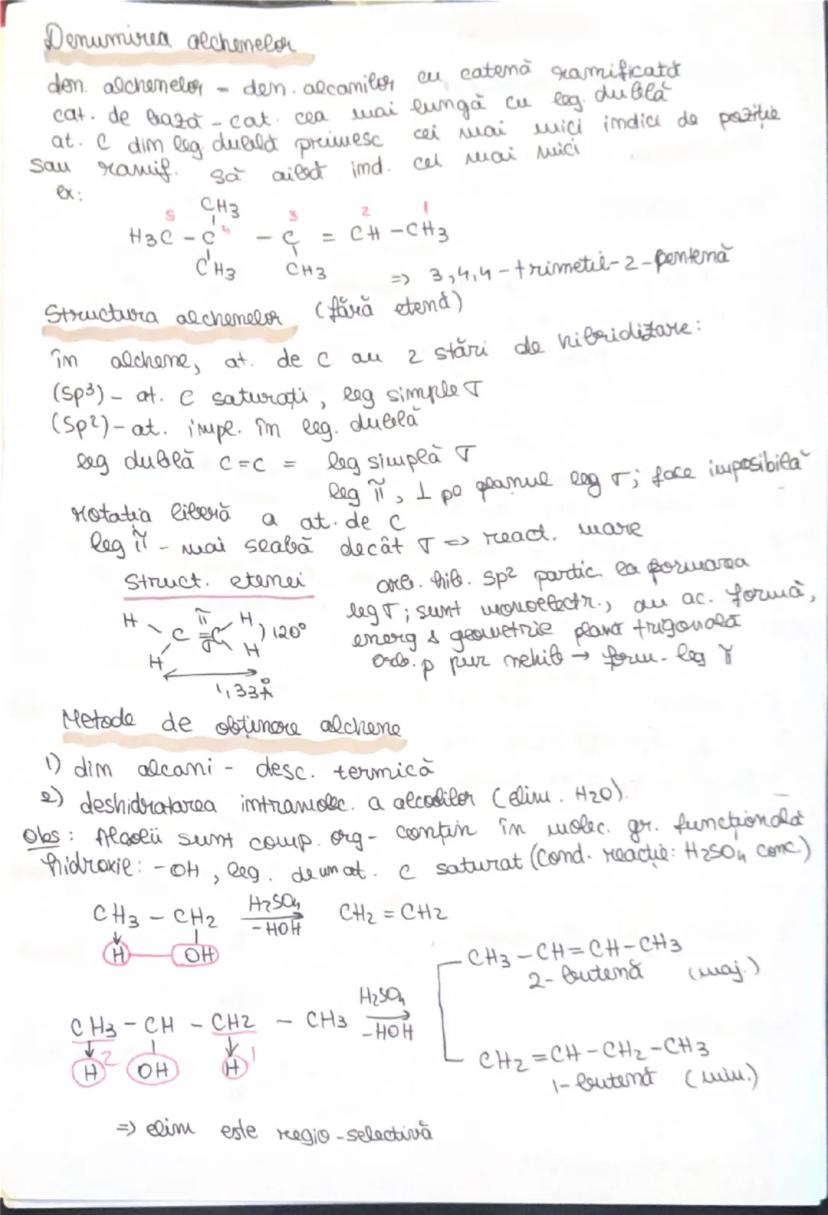 Denumirea alchenelor
den. alchenelor - den. alcanilor cu catenă ramificată
cat. de bază - cat. cea mai lungă cu leg. dublă
at. C din leg. dublă primesc cei mai mici indici de poziție
sau ramif. să aibă ind. cel mai mici
ex:
CH3
5 4 3 2 1
H3C - C - C = CH - CH3
CH3 CH3 => 3,4,4-trimetil-2-pentenă
Structura alchenelor (fără etenă)
în alchene, at. de C au 2 stări de hibridizare:
(sp3) - at. C saturați, leg simple σ
(sp2) - at. impl. în leg. dublă
leg dublă C=C = leg simplă σ
leg π, ⊥ pe planul leg σ; face imposibilă
rotația liberă a at. de C
leg π - mai slabă decât σ => react. mare
Struct. etenei
orb. hib. sp2 partic. la formarea
leg σ; sunt monoelectr., au ac. formă,
energ & geometrie plană trigonală
orb. p pur nehib → form. leg
H π H
C = C ) 120°
H σ H
1,33Å
Metode de obținere alchene
1) din alcani - desc. termică
2) deshidratarea intramolec. a alcoolilor (elim. H2O)
Obs: Alcolii sunt comp. org - conțin în molec. gr. funcțională
hidroxil: -OH, leg. de un at. C saturat (Cond. reacție: H2SO4 conc.)
CH3 - CH2 H2SO4 → -HOH CH2 = CH2
H OH
CH3 - CH = CH - CH3
2-butenă (maj.)
CH3 - CH - CH2 - CH3 H2SO4 → -HOH
H 2 OH H 1
CH2 = CH - CH2 - CH3
1-butenă (min.)
=> elim este regio-selectivă